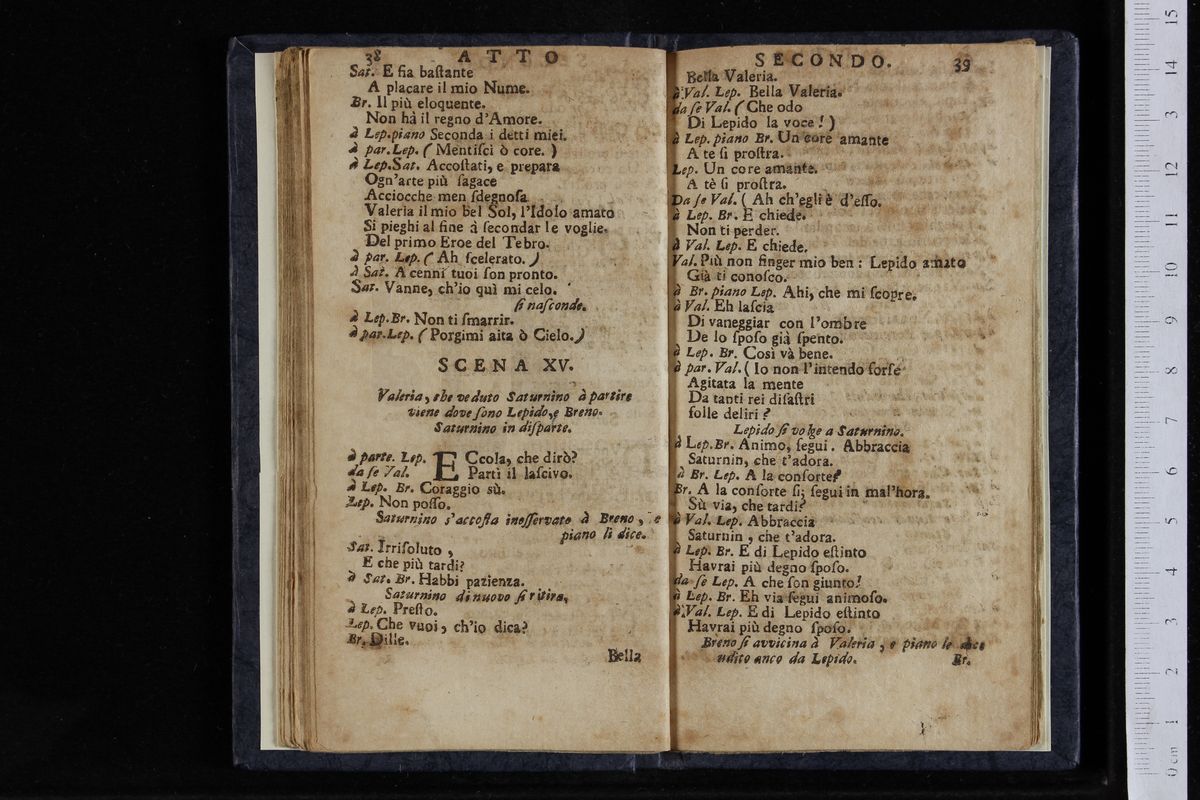 38 ATTO
Sat. E fia baſtante
A placare il mio Nume.
Br. Il più eloquente.
Non hà il regno d'Amore.
à Lep.piano Seconda i detti miei.
à par.Lep. ( Mentiſci ò core. )
à Lep.Sat. Accoſtati, e prepara
Ogn'arte più ſagace
Acciocche men ſdegnoſa
Valeria il mio bel Sol, l'Idolo amato
Si pieghi al fine â ſecondar le voglie.
Del primo Eroe del Tebro.
à par. Lep. ( Ah ſcelerato. )
à Sat. A cenni tuoi ſon pronto.
Sat. Vanne, ch'io quì mi celo.
ſi naſconde.
à Lep.Br. Non ti ſmarrir.
à par.Lep. ( Porgimi aita ò Cielo.)
SCENA XV.
Valeria, che veduto Saturnino à partire
viene dove ſono Lepido,e Breno.
Saturnino in diſparte.
à parte. Lep. ECcola, che dirò?
da ſe Val. Partì il laſcivo.
à Lep. Br. Coraggio sù.
Lep. Non poſſo.
Saturnino s'accoſta ineſſervato à Breno, e
piano li dice.
Sat. Irriſoluto ,
E che più tardi?
à Sat. Br. Habbi pazienza.
Saturnino di nuovo ſi ritira,
à Lep. Preſto.
Lep. Che vuoi, ch'io dica?
Br. Dille.
Bella
SECONDO. 39
Bella Valeria.
à Val. Lep. Bella Valeria.
da ſe Val. ( Che odo
Di Lepido la voce ! )
à Lep. piano Br. Un core amante
A te ſi proſtra.
Lep. Un core amante.
A tè ſi proſtra.
Da ſe Val. ( Ah ch'egli è d'eſſo.
à Lep. Br. E chiede.
Non ti perder.
à Val. Lep. E chiede.
Val. Più non finger mio ben : Lepido amato
Già ti conoſco.
à Br. piano Lep. Ahi, che mi ſcopre.
à Val. Eh laſcia
Di vaneggiar con l'ombre
De lo ſpoſo già ſpento.
à Lep. Br. Così và bene.
à par. Val. ( Io non l'intendo forſe
Agitata la mente
Da tanti rei diſaſtri
folle deliri ?
Lepido ſi volge a Saturnino.
à Lep.Br. Animo, ſegui. Abbraccia
Saturnin, che t'adora.
à Br. Lep. A la conſorte?
Br. A la conſorte ſi; ſegui in mal'hora.
Sù via, che tardi?
à Val. Lep. Abbraccia
Saturnin , che t'adora.
à Lep. Br. E di Lepido eſtinto
Havrai più degno ſpoſo.
da ſe Lep. A che ſon giunto!
à Lep. Br. Eh via ſegui animoſo.
à Val. Lep. E di Lepido eſtinto
Havrai più degno ſpoſo.
Breno ſi avvicina à Valeria , e piano le dice
udito anco da Lepido.
Br.
0 cm 1 2 3 4 5 6 7 8 9 10 11 12 13 14 15